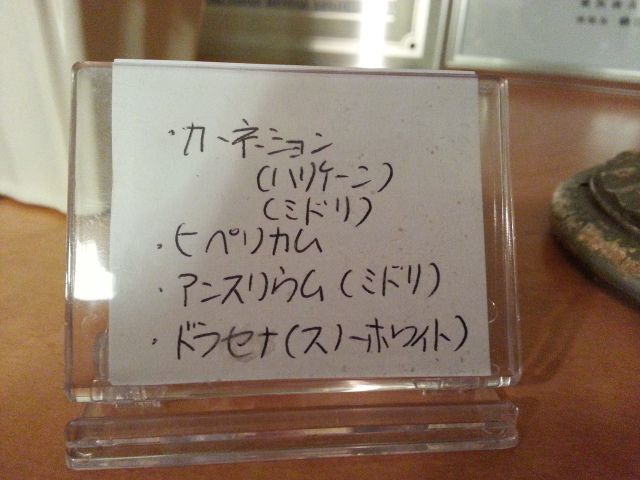 ・カーネーション
(ハリケーン)
(ミドリ)
・ヒペリカム
・アンスリウム(ミドリ)
・ドラセナ(スノーホワイト)